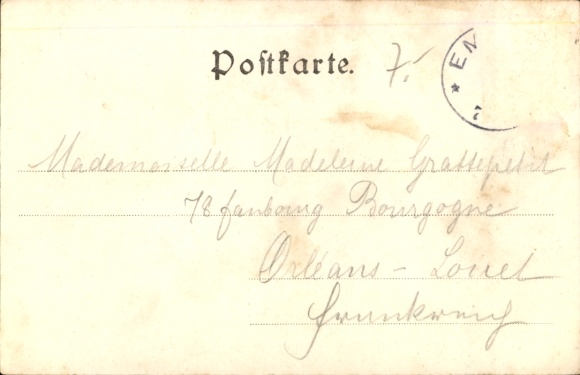 Postkarte.
7.-
* EM
Mademoiselle Madeleine Grattepetit
78 faubourg Bourgogne
Orléans - Loiret
Frankreich